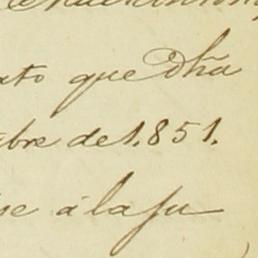 ato que dha
bre de 1.851.
se á la fu